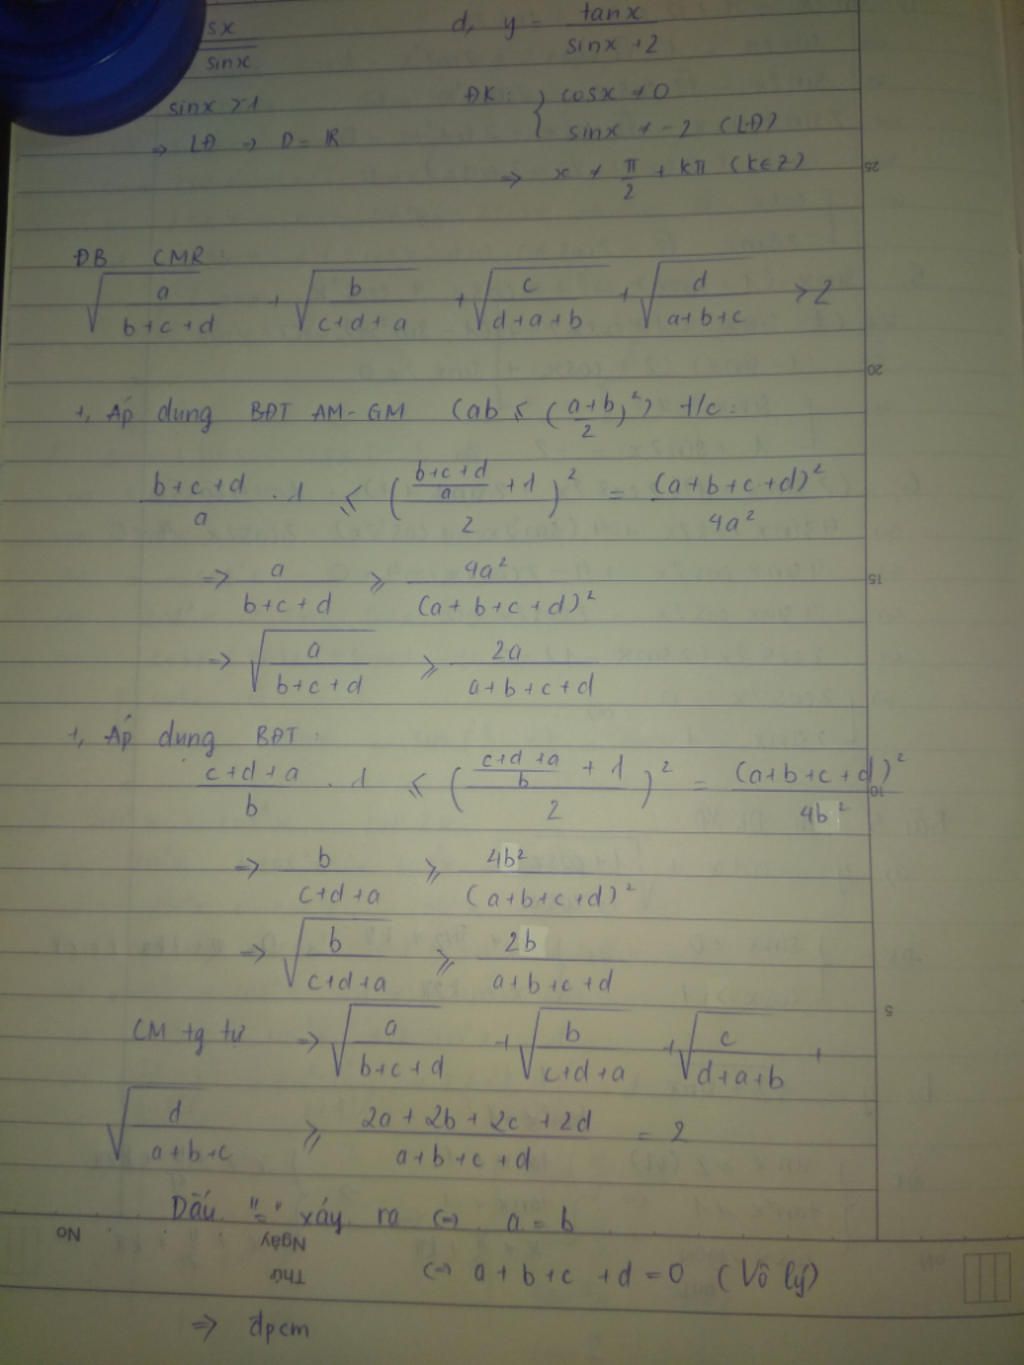 sx / sinx
d, y = tanx / sinx + 2
sinx > 1
ĐK: { cosx ≠ 0
⇒ LĐ ⇒ D = R
sinx ≠ -2 (LĐ)
⇒ x ≠ π/2 + kπ (k∈Z)
25
ĐB CMR:
√(a / b+c+d) + √(b / c+d+a) + √(c / d+a+b) + √(d / a+b+c) > 2
20
1, Áp dung BĐT AM-GM (ab ≤ (a+b / 2)²) t/c:
b+c+d / a . 1 ≤ ((b+c+d / a + 1) / 2)² = (a+b+c+d)² / 4a²
⇒ a / b+c+d ≥ 4a² / (a+b+c+d)²
15
⇒ √(a / b+c+d) ≥ 2a / a+b+c+d
1, Áp dung BĐT:
c+d+a / b . 1 ≤ ((c+d+a / b + 1) / 2)² = (a+b+c+d)² / 4b²
10
⇒ b / c+d+a ≥ 4b² / (a+b+c+d)²
⇒ √(b / c+d+a) ≥ 2b / a+b+c+d
5
CM tg tự ⇒ √(a / b+c+d) + √(b / c+d+a) + √(c / d+a+b) +
√(d / a+b+c) ≥ 2a+2b+2c+2d / a+b+c+d = 2
Dấu "=" xảy ra ⇔ a = b
No
Ngày
Thứ
⇔ a+b+c+d = 0 (Vô lý)
⇒ đpcm